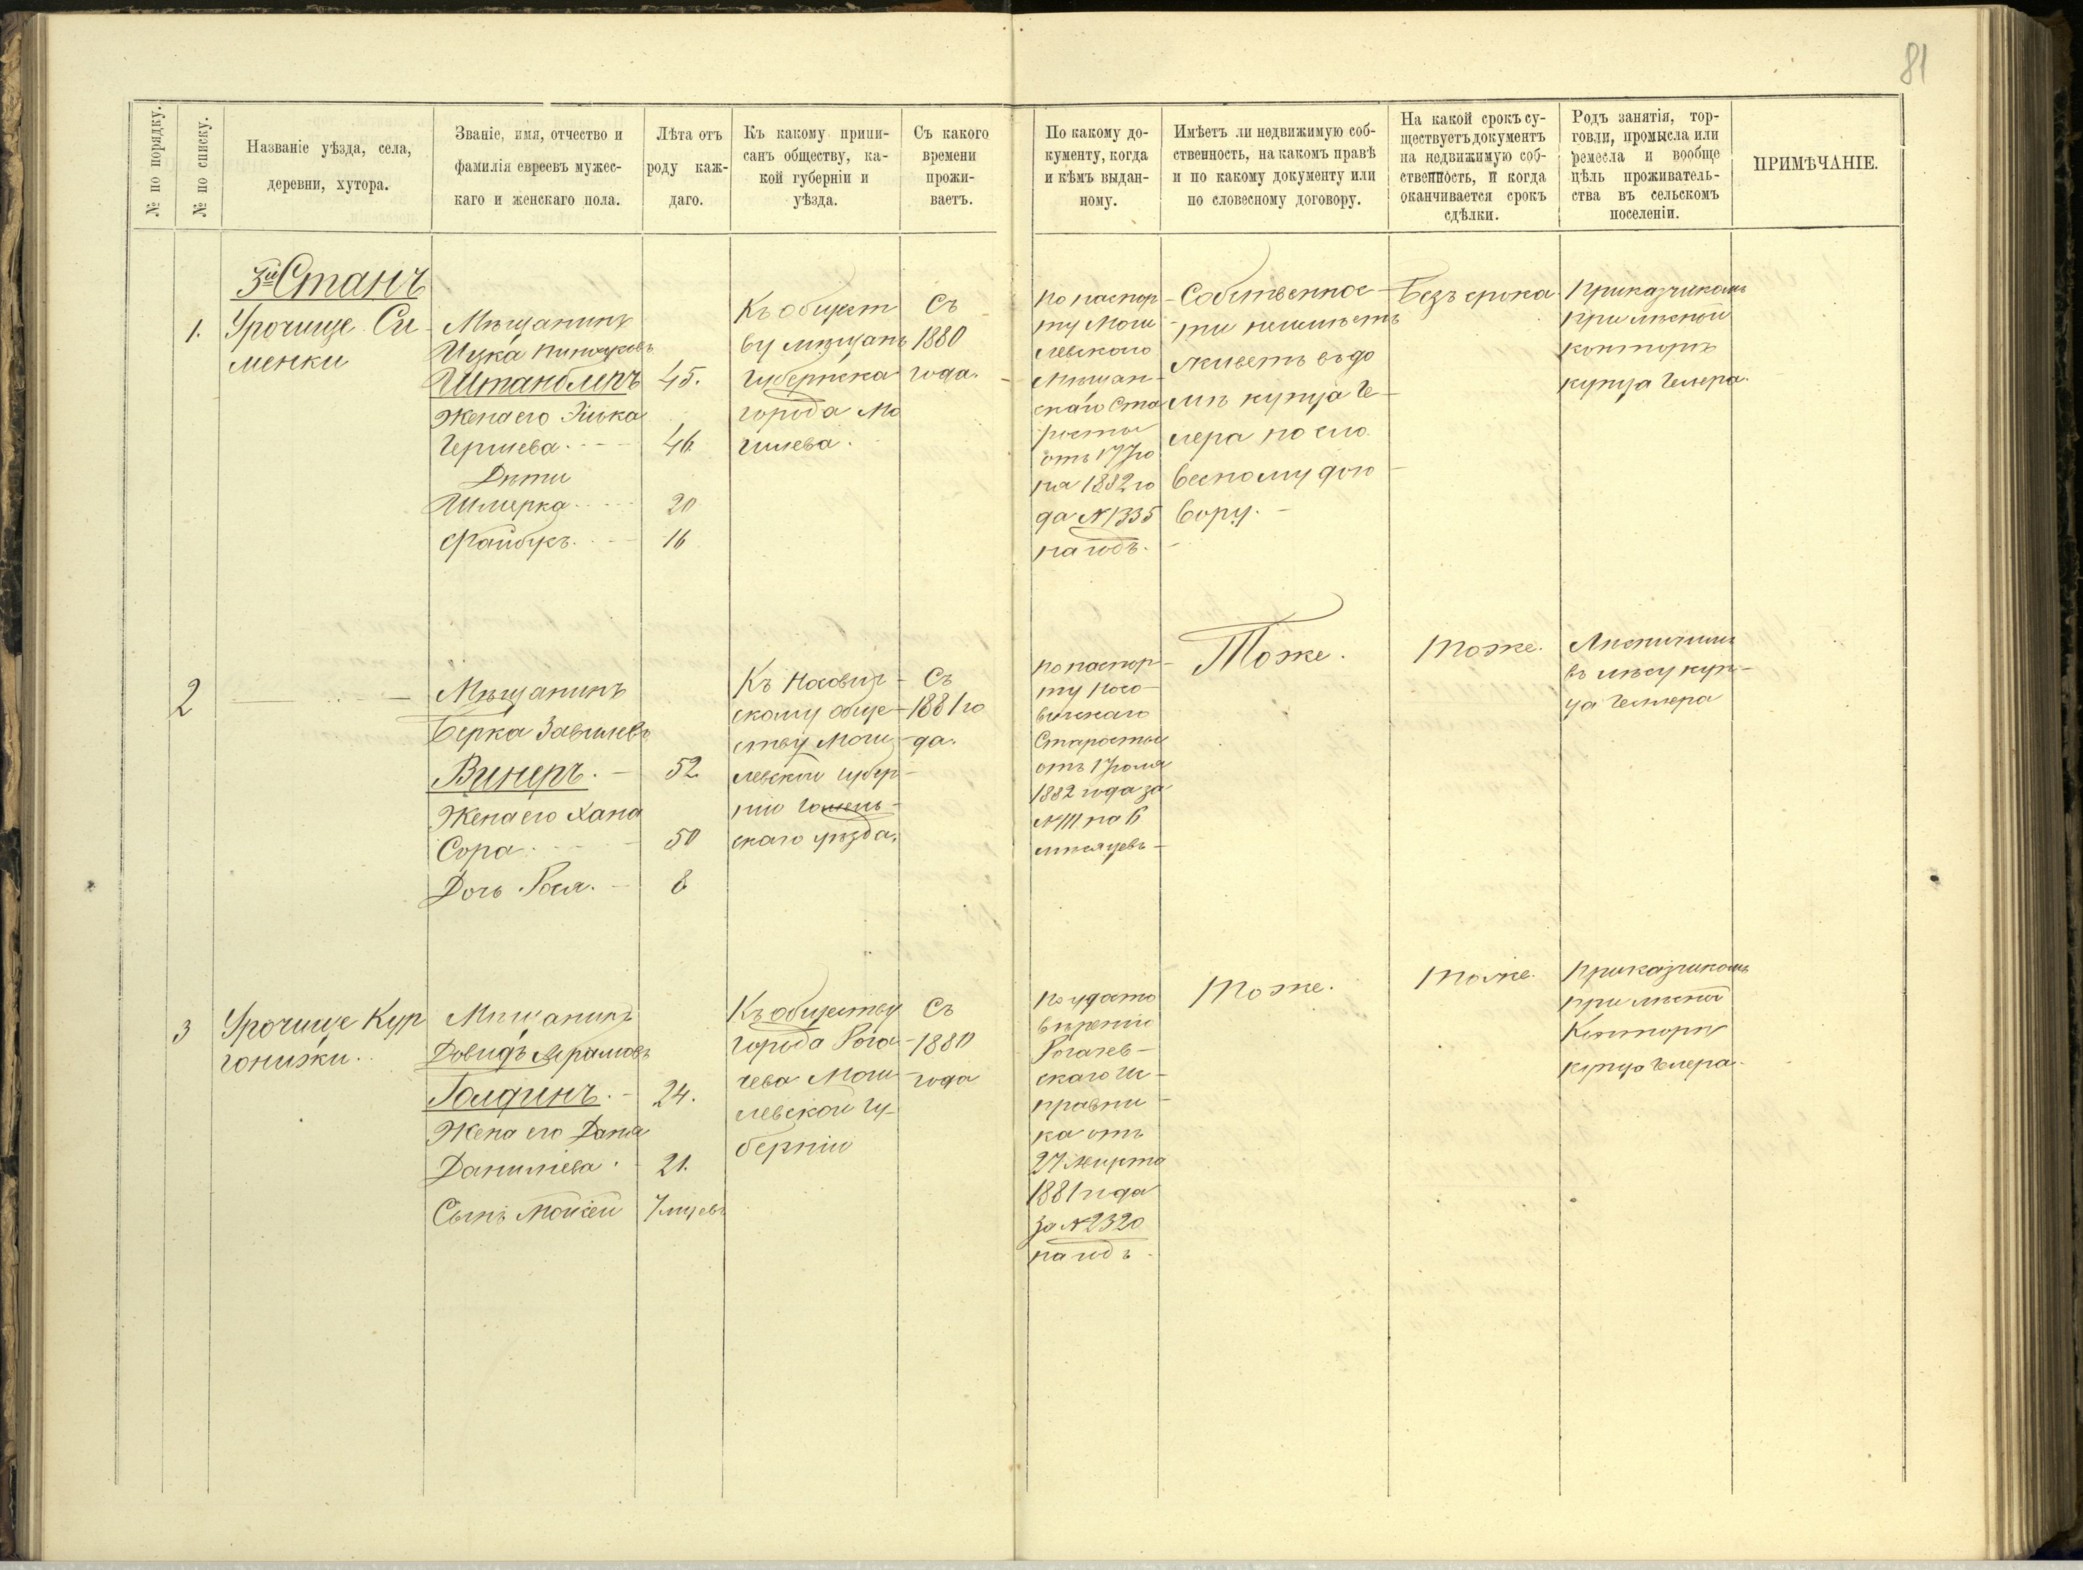 81
№ по порядку.
№ по списку.
Названіе уѣзда, села,
деревни, хутора.
Званіе, имя, отчество и
фамилія евреевъ мужес-
каго и женскаго пола.
Лѣта отъ
роду каж-
даго.
Къ какому припи-
санъ обществу, ка-
кой губерніи и
уѣзда.
Съ какого
времени
прожи-
ваетъ.
По какому до-
кументу, когда
и кѣмъ выдан-
ному.
Имѣетъ ли недвижимую соб-
ственность, на какомъ правѣ
и по какому документу или
по словесному договору.
На какой срокъ су-
ществуетъ документъ
на недвижимую соб-
ственность, и когда
оканчивается срокъ
сдѣлки.
Родъ занятія, тор-
говли, промысла или
ремесла и вообще
цѣль проживатель-
ства въ сельскомъ
поселеніи.
ПРИМѢЧАНІЕ.
3й Станъ
1.
Урочище Си
менки
Мѣщанинъ
Ицка
Штанблеръ 45.
Жена его Эшка
Гершева 46
Дѣти
Шмерка 20
Файбукъ 16
Къ общест
ву мѣщанъ
губернска
города Мо
гилева.
Съ
1880
года.
по паспор
ту Моги
левскаго
Мѣщан-
скаго Ста
росты
от 17
на 1882 го
да № 1335
на годъ.
Собственнос
ти неимѣетъ
живетъ въ до
мѣ купца Ге
лера по сло
весному дого
вору.
Безъ срока
Приказчикомъ
при лѣсной
конторѣ
купца Гелера.
2
Мѣщанинъ
Берка Завелевъ
Винеръ. 52
Жена его Хана
Сора 50
Дочь Рося. 8
Къ Носович
скому обще
ству Моги
левской губер
ніи Гомель-
скаго уѣзда.
Съ
1881 го
да.
по паспор
ту Носо
вичскаго
Старосты
отъ 17
1882 года за
№ 111 на 6
мѣсяцевъ
Тоже.
тоже.
Лѣсничимъ
въ лѣсу куп-
ца Гелера
3
Урочище Кур
гонижки.
Мѣщанинъ
Довидъ Абрамовъ
Голдинъ. 24.
Жена его Даня
Данилиева 21.
Сынъ Моисей 7 мцевъ
Къ обществу
города Рога
чева Моги
левской Гу
берніи
Съ
1880
года
По удосто
вѣренію
Рогачев
скаго Ис
правни
ка отъ
27 Марта
1881 года
За № 2320
на годъ.
Тоже.
тоже.
Приказчикомъ
при лѣсной
Конторѣ
купца Гелера.